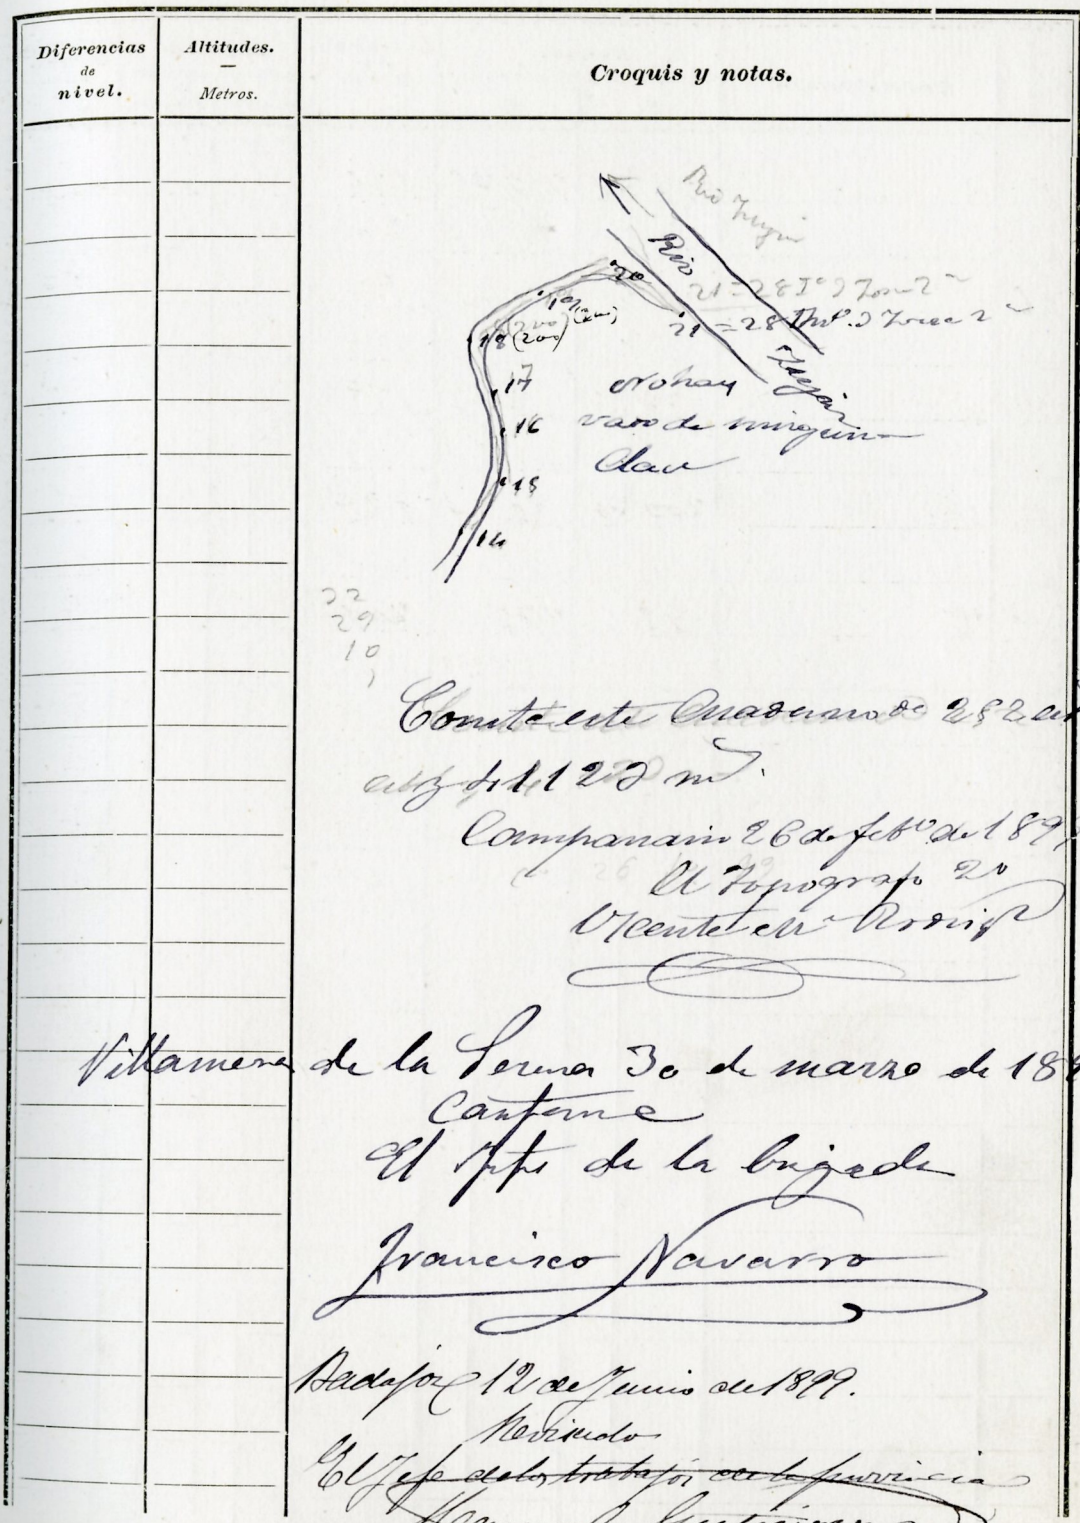 Diferencias
de
nivel.
Altitudes.
—
Metros.
Croquis y notas.
Rio Zujar
Rio
20
19
21 = 28
18 (200)
21 = 28
Zujar
17
No hay
16 vado de ningun
clase
15
14
22
29
10
Consta este Cuaderno de 252
112
Campanario 26 de febº de 189
El Topografo 2º
Vicente Mª
Villanueva de la Serena 30 de marzo de 18
Conforme
El Jefe de la brigada
Francisco Navarro
Badajoz 12 de Junio de 1899.
Revisado
El Jefe de los trabajos de la provincia